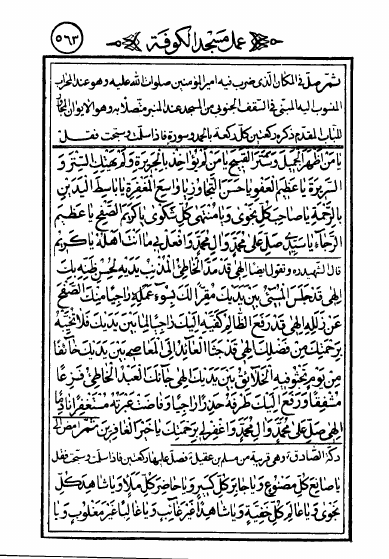 ٥٦٣
عمل مسجد الكوفة
ثم صل في المكان الذي ضرب فيه امير المؤمنين صلوات الله عليه وهو عند المحراب
المنسوب اليه المبني في السقف الجنوبي من المسجد عند المنبر وهو الايوان
للباب المقدم ذكره ركعتين كل ركعة بالحمد وسورة فاذا سلمت وسبحت فقل
يا من اظهر الجميل وستر القبيح يا من لم يؤاخذ بالجريرة ولم يهتك الستر و
السريرة يا عظيم العفو يا حسن التجاوز يا واسع المغفرة يا باسط اليدين
بالرحمة يا صاحب كل نجوى ويا منتهى كل شكوى يا كريم الصفح يا عظيم
الرجاء يا سيدي صل على محمد وال محمد وافعل بي ما انت اهله يا كريم
قال الشهيد ره وتقول ايضا الهي قد مد الخاطئ المذنب يديه لحسن ظنه بك
الهي قد جلس المسيء بين يديك مقرا لك بسوء عمله راجيا منك الصفح
عن زلله الهي قد رفع الظالم كفيه اليك راجيا لما بين يديك فلا تخيبه
برحمتك من فضلك الهي قد جثا العائد الى المعاصي بين يديك خائفا
من يوم يجثو فيه الخلائق بين يديك الهي جاءك العبد الخاطئ فزعا
مشفقا ورفع اليك طرفه حذرا راجيا وفاضت عبرته مستغفرا نادما
الهي صل على محمد وال محمد واغفر لي برحمتك يا خير الغافرين ثم امض الى
دكة الصادق وهي قريبة من مسلم بن عقيل فصل عليها ركعتين فاذا سلمت وسبحت فقل
يا صانع كل مصنوع ويا جابر كل كسير ويا حاضر كل ملاء ويا شاهد كل
نجوى ويا عالم كل خفية ويا شاهدا غير غائب ويا غالبا غير مغلوب ويا